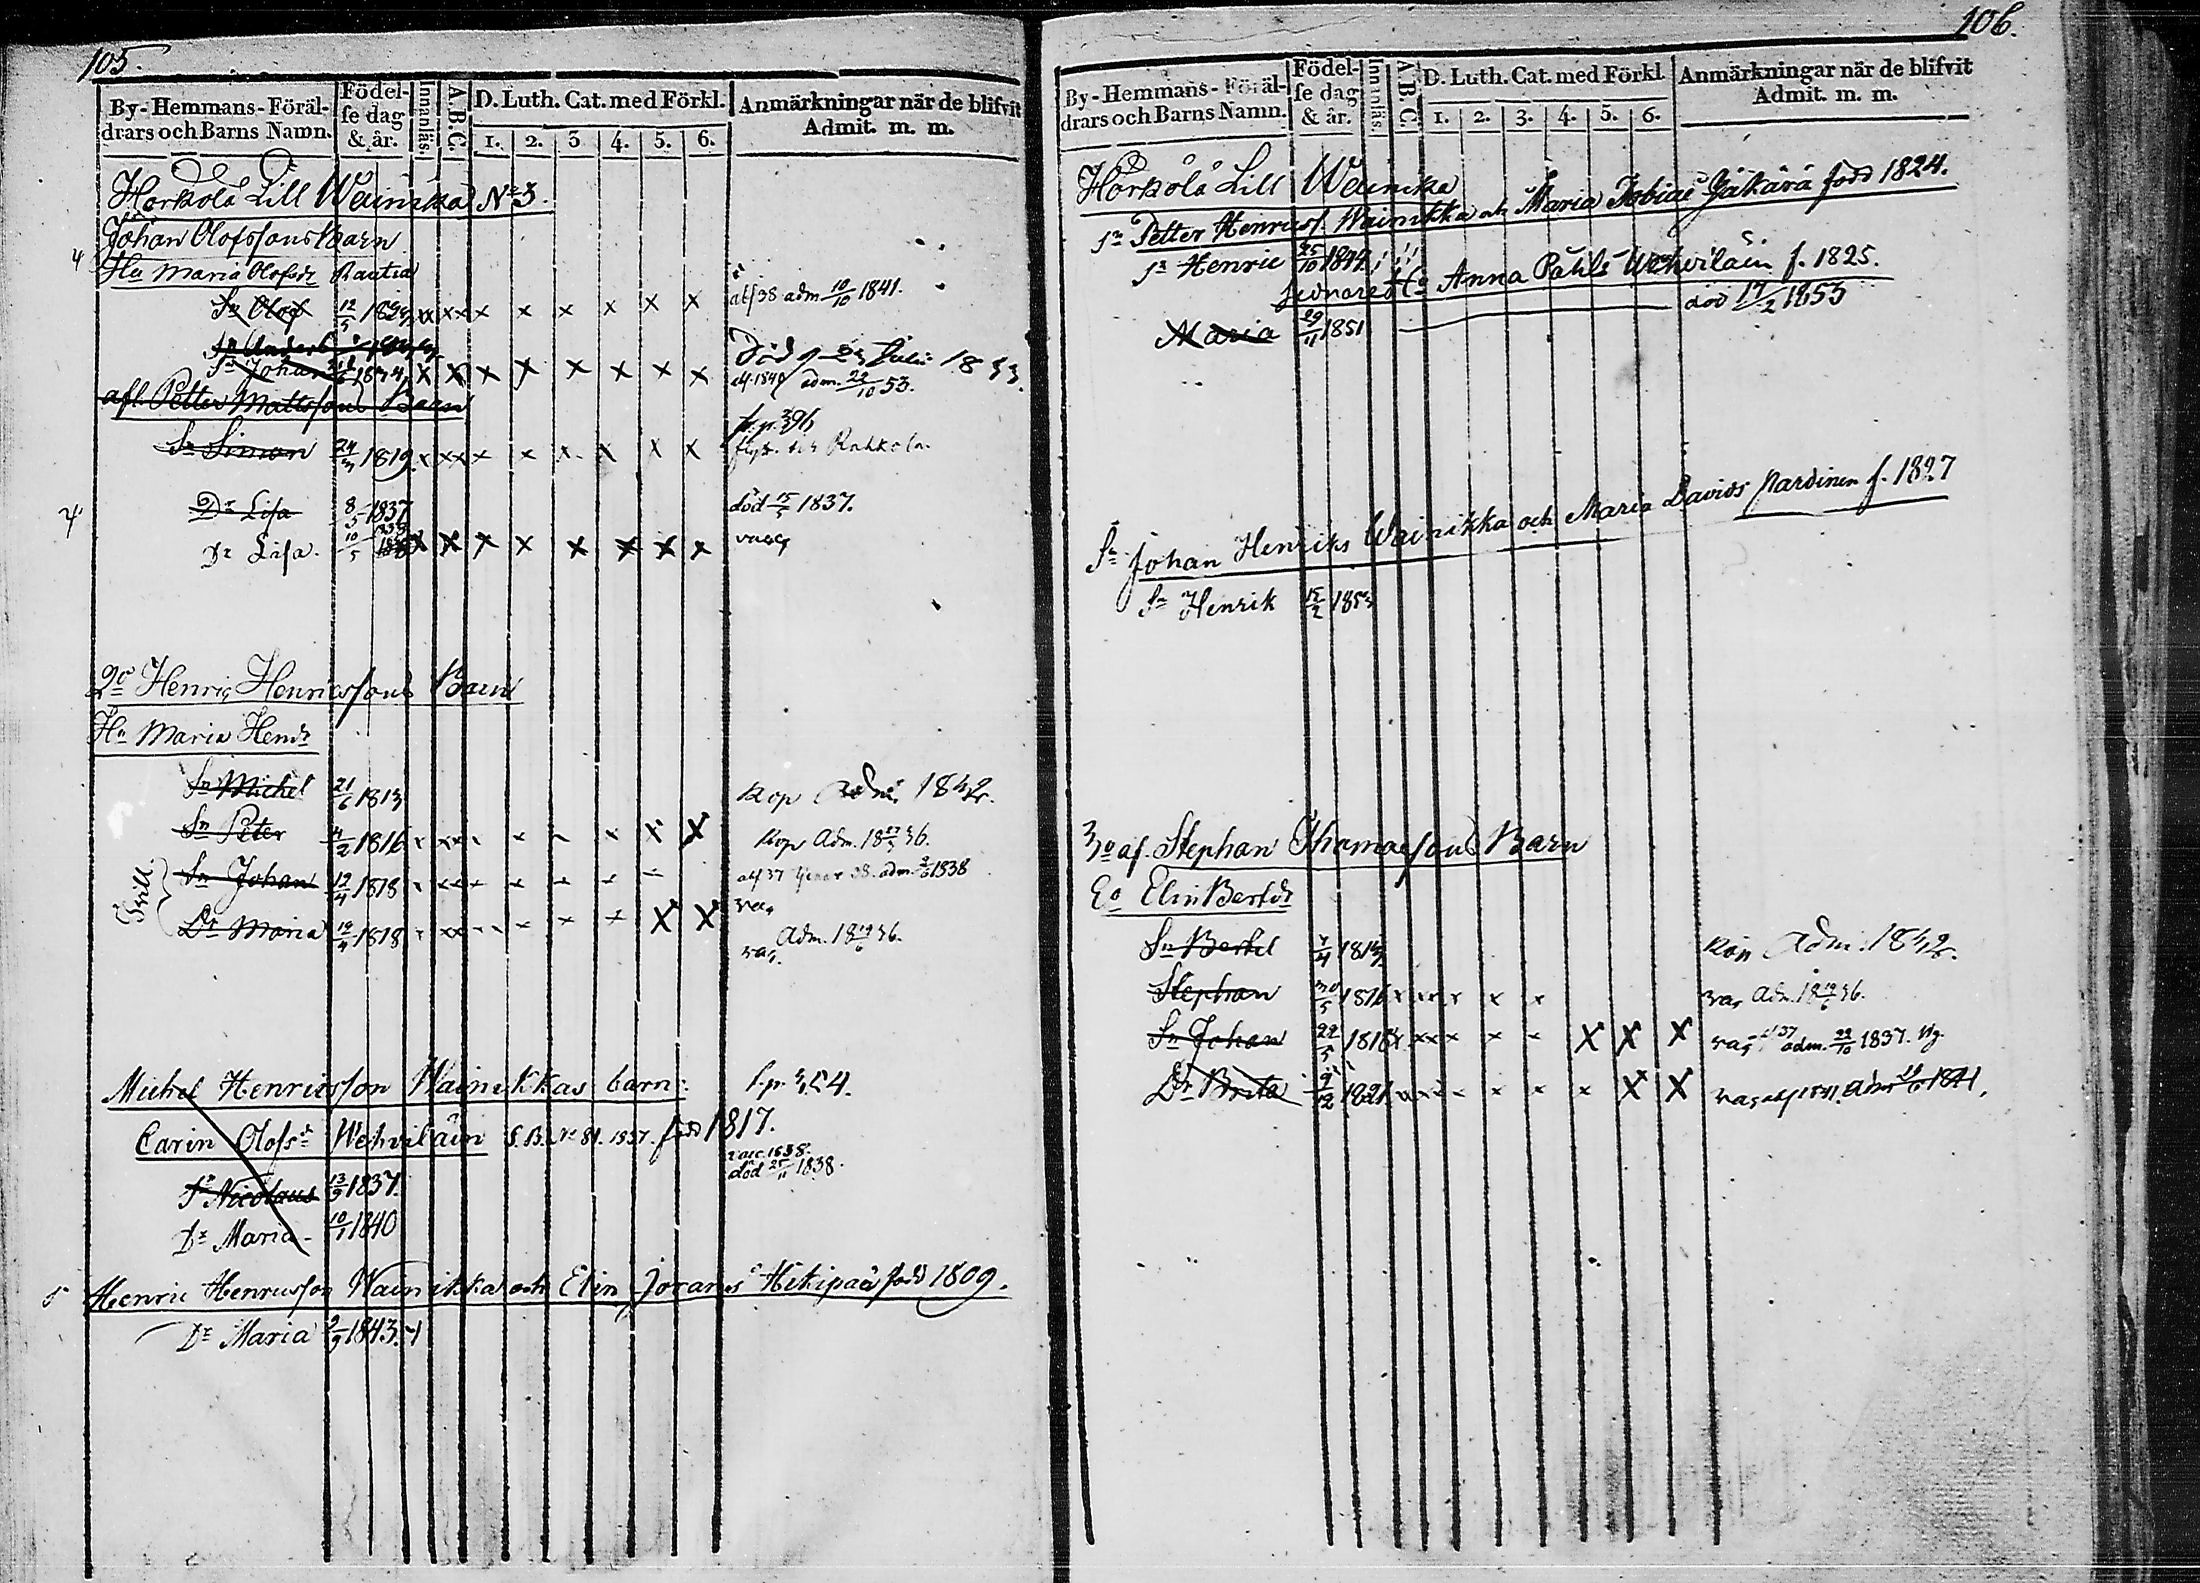 105.
By-Hemmans-Föräl-
drars och Barns Namn.
Födel-
se dag
& år.
Innanläs.
A.B.C.
D. Luth. Cat. med Förkl.
1. 2. 3 4. 5. 6.
Anmärkningar när de blifvit
Admit. m. m.
Horkola Lill Wainika No 3.
Johan Olofssons Barn
Hu Maria Olofsdr Rautia
Sn Olof 12/5 18 x x x x x x x x x adm 10/10 1841.
Sn Anders Död 1833.
Sn Johan 1834 x x x x x x x x adm. 22/10 53.
afl. Petter Mattssons Barn
Sn Simon 24/3 1819 x x x x x x x x x flytt. till Rahkola.
Dr Lisa 8/5 1837 död 15/5 1837.
Dr Lisa. 10/5 1838 x x x x x x x x
2o Henric Henricssons Barn
Hu Maria Hendr
Sn Michel 21/6 1813 Kop Adm. 1832.
Sn Peter 4/2 1816 x x x x x x x x x Kop Adm. 1836.
Tvill.
Sn Johan 19/4 1818 adm. 1838
Dr Maria 19/4 1818 X X vac. Adm. 18 19/6 36.
Michel Henricsson Wainikkas barn:
Carin Olofsd Wehviläin S.B. No 81. 1837. född 1817.
Sn Nicolaus 13/9 1837. vacc. 1838. död 25/11 1838.
Dr Maria 10/1 1840
Henric Henricsson Wainikka och Elin Jörans Hikipää född 1809.
Dr Maria 2/9 1843.
106.
By-Hemmans-Föräl-
drars och Barns Namn.
Födel-
se dag
& år.
Innanläs.
A.B.C.
D. Luth. Cat. med Förkl.
1. 2. 3. 4. 5. 6.
Anmärkningar när de blifvit
Admit. m. m.
Horkola Lill Wainika
Sn Petter Henricss. Wainikka och Maria Tobiae Jäkärä född 1824.
Sn Henric 25/10 1844
Anna Påhls Wehviläin f. 1825.
Maria 29/11 1851 död 17/2 1853
Sn Johan Henriks Wainikka och Maria Davids Pardinen f. 1827
Sn Henrik 15/2 1853
3o af. Stephan Thomassons Barn
Eo Elin Bertsdr
Sn Bertel 1813 Adm. 1832.
Stephan 30/5 1816 x x x x x x vac. Adm. 18 19/6 36.
Sn Johan 22/5 1818 x x x x x x X X X vac. adm. 22/10 1837.
Dr Brita 9/12 1821 x x x x x x x X X vac. 1841. adm 1841.